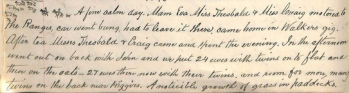 A fine calm day. Mam Vos Miss Theobald & Miss Craig motored to
The Ranges, car went bung, had to leave it there, came home in Walkers gig.
After tea Misses Theobald & Craig came and spent the evening. In the afternoon
went out on back with John and we put 24 ewes with twins on to flat and
then on the oats - 27 ewes there now with their twins, and room for many more
twins on the back near Higgins. A noticeable growth of grass in paddocks.